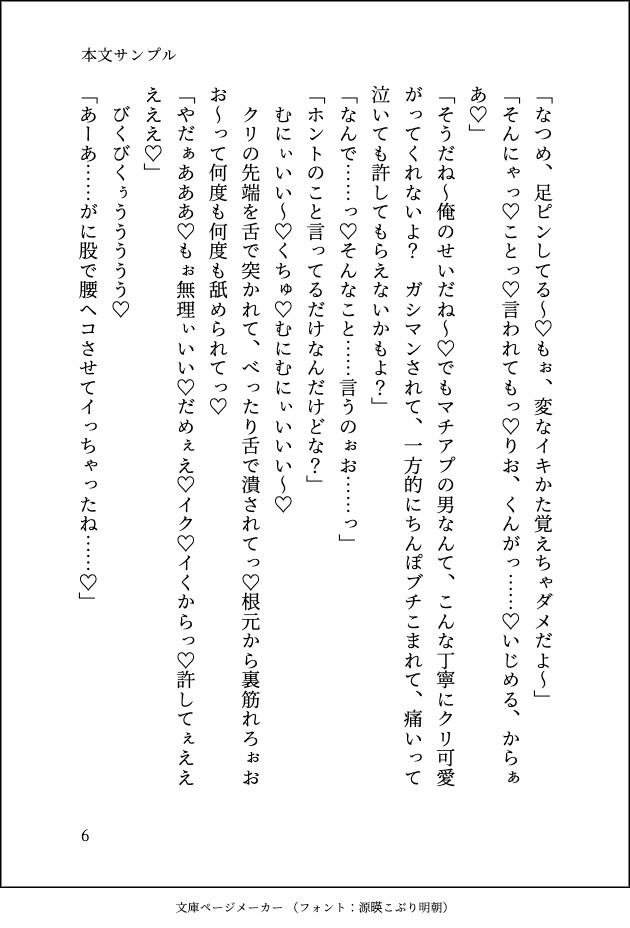 本文サンプル
「なつめ、足ピンしてる～♡もぉ、変なイキかた覚えちゃダメだよ～」
「そんにゃっ♡ことっ♡言われてもっ♡りお、くんがっ……♡いじめる、からぁ
あ♡」
「そうだね～俺のせいだね～♡でもマチアプの男なんて、こんな丁寧にクリ可愛
がってくれないよ？　ガシマンされて、一方的にちんぽブチこまれて、痛いって
泣いても許してもらえないかもよ？」
「なんで……っ♡そんなこと……言うのぉお……っ」
「ホントのこと言ってるだけなんだけどな？」
　むにぃいい～♡くちゅ♡むにむにぃいいい～♡
　クリの先端を舌で突かれて、べったり舌で潰されてっ♡根元から裏筋れろぉお
お～って何度も何度も舐められてっ♡
「やだぁあああ♡もぉ無理ぃいい♡だめぇえ♡イク♡イくからっ♡許してぇええ
えええ♡」
　びくびくぅううううう♡
「あーあ……がに股で腰ヘコさせてイっちゃったね……♡」
6
文庫ページメーカー（フォント：源暎こぶり明朝）